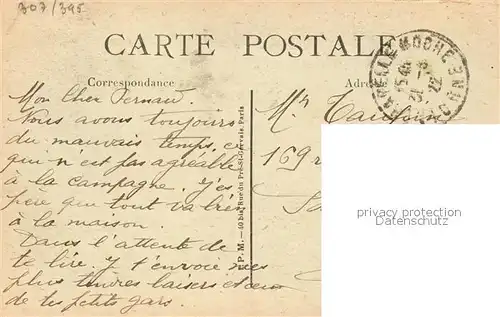 307/395
CARTE POSTALE
Correspondance
Mon Cher Fernand.
Nous avons toujours
du mauvais temps, ce
qui n'est pas agréable
à la campagne. J'es
père que tout va bien
à la maison.
Dans l'attente de
te lire. Je t'envoie mes
plus tendres baisers et ceux
de tes petits gars.
P. M. — 40 bis, Rue du Pré-St-Gervais, Paris
Adres
Mr
169 r
MOCHE
privacy protection
Datenschutz